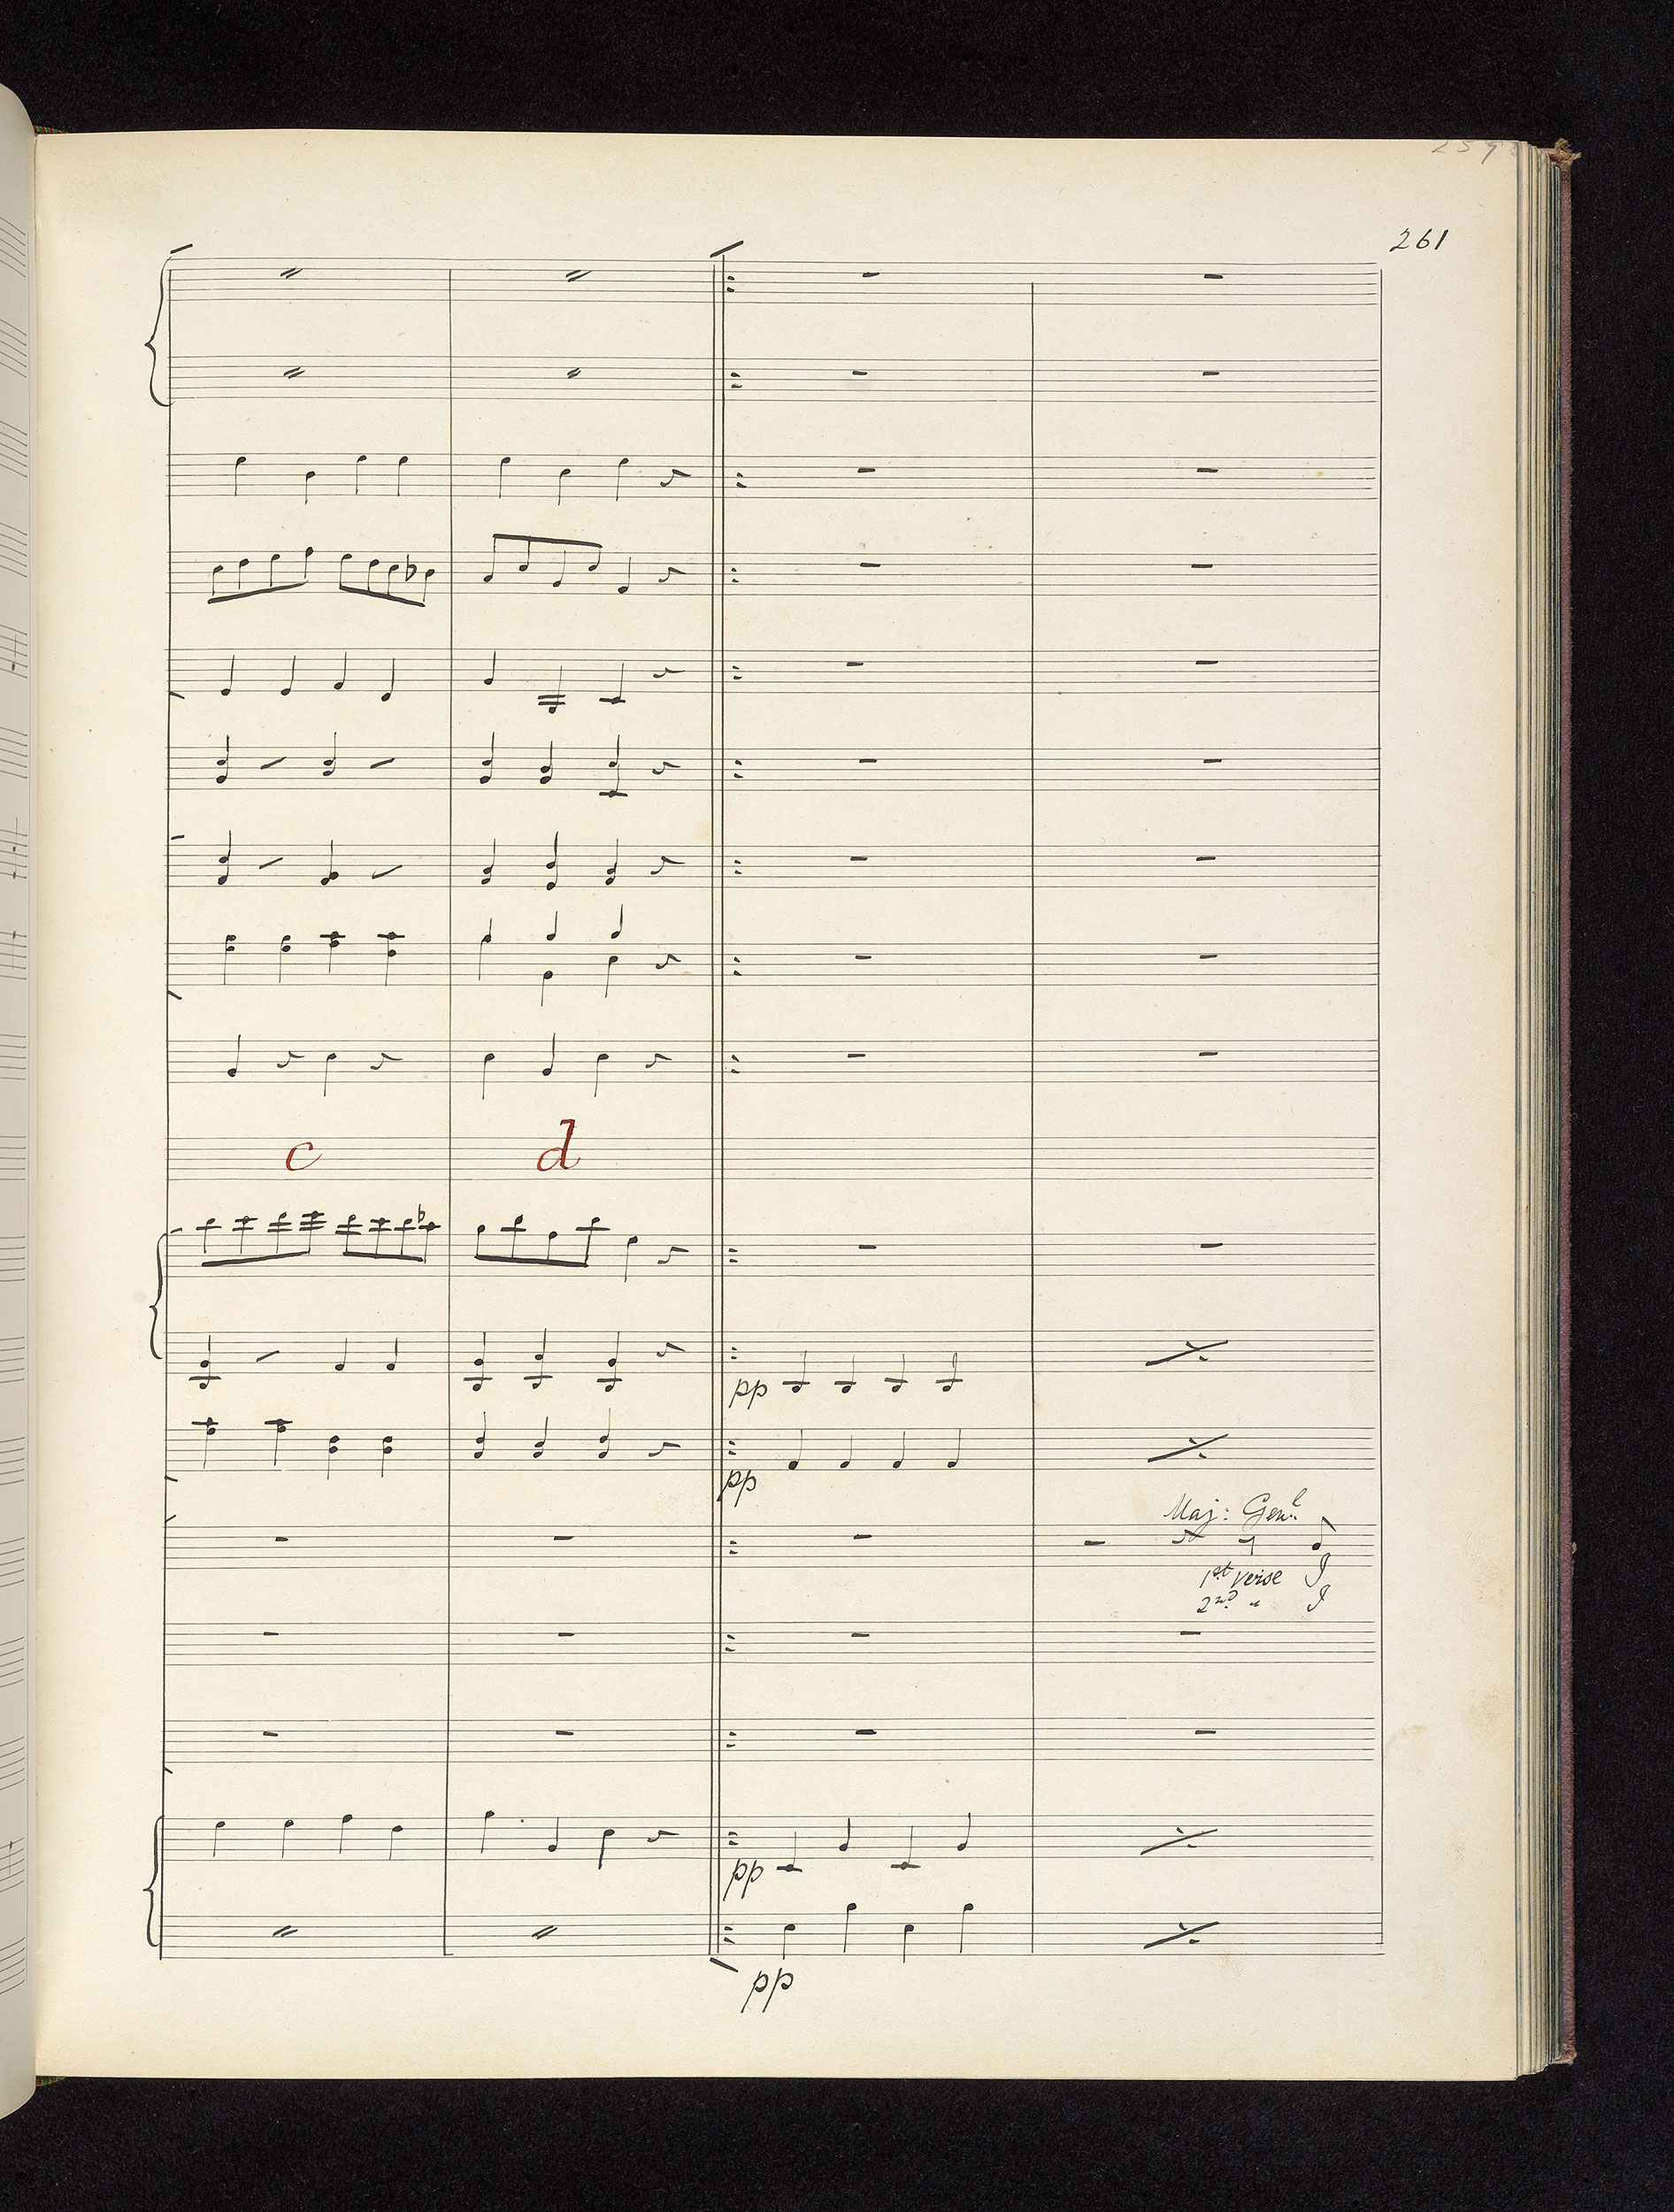 261
c d
pp
pp
Maj: Genl.
1st verse I
2nd " I
pp
pp